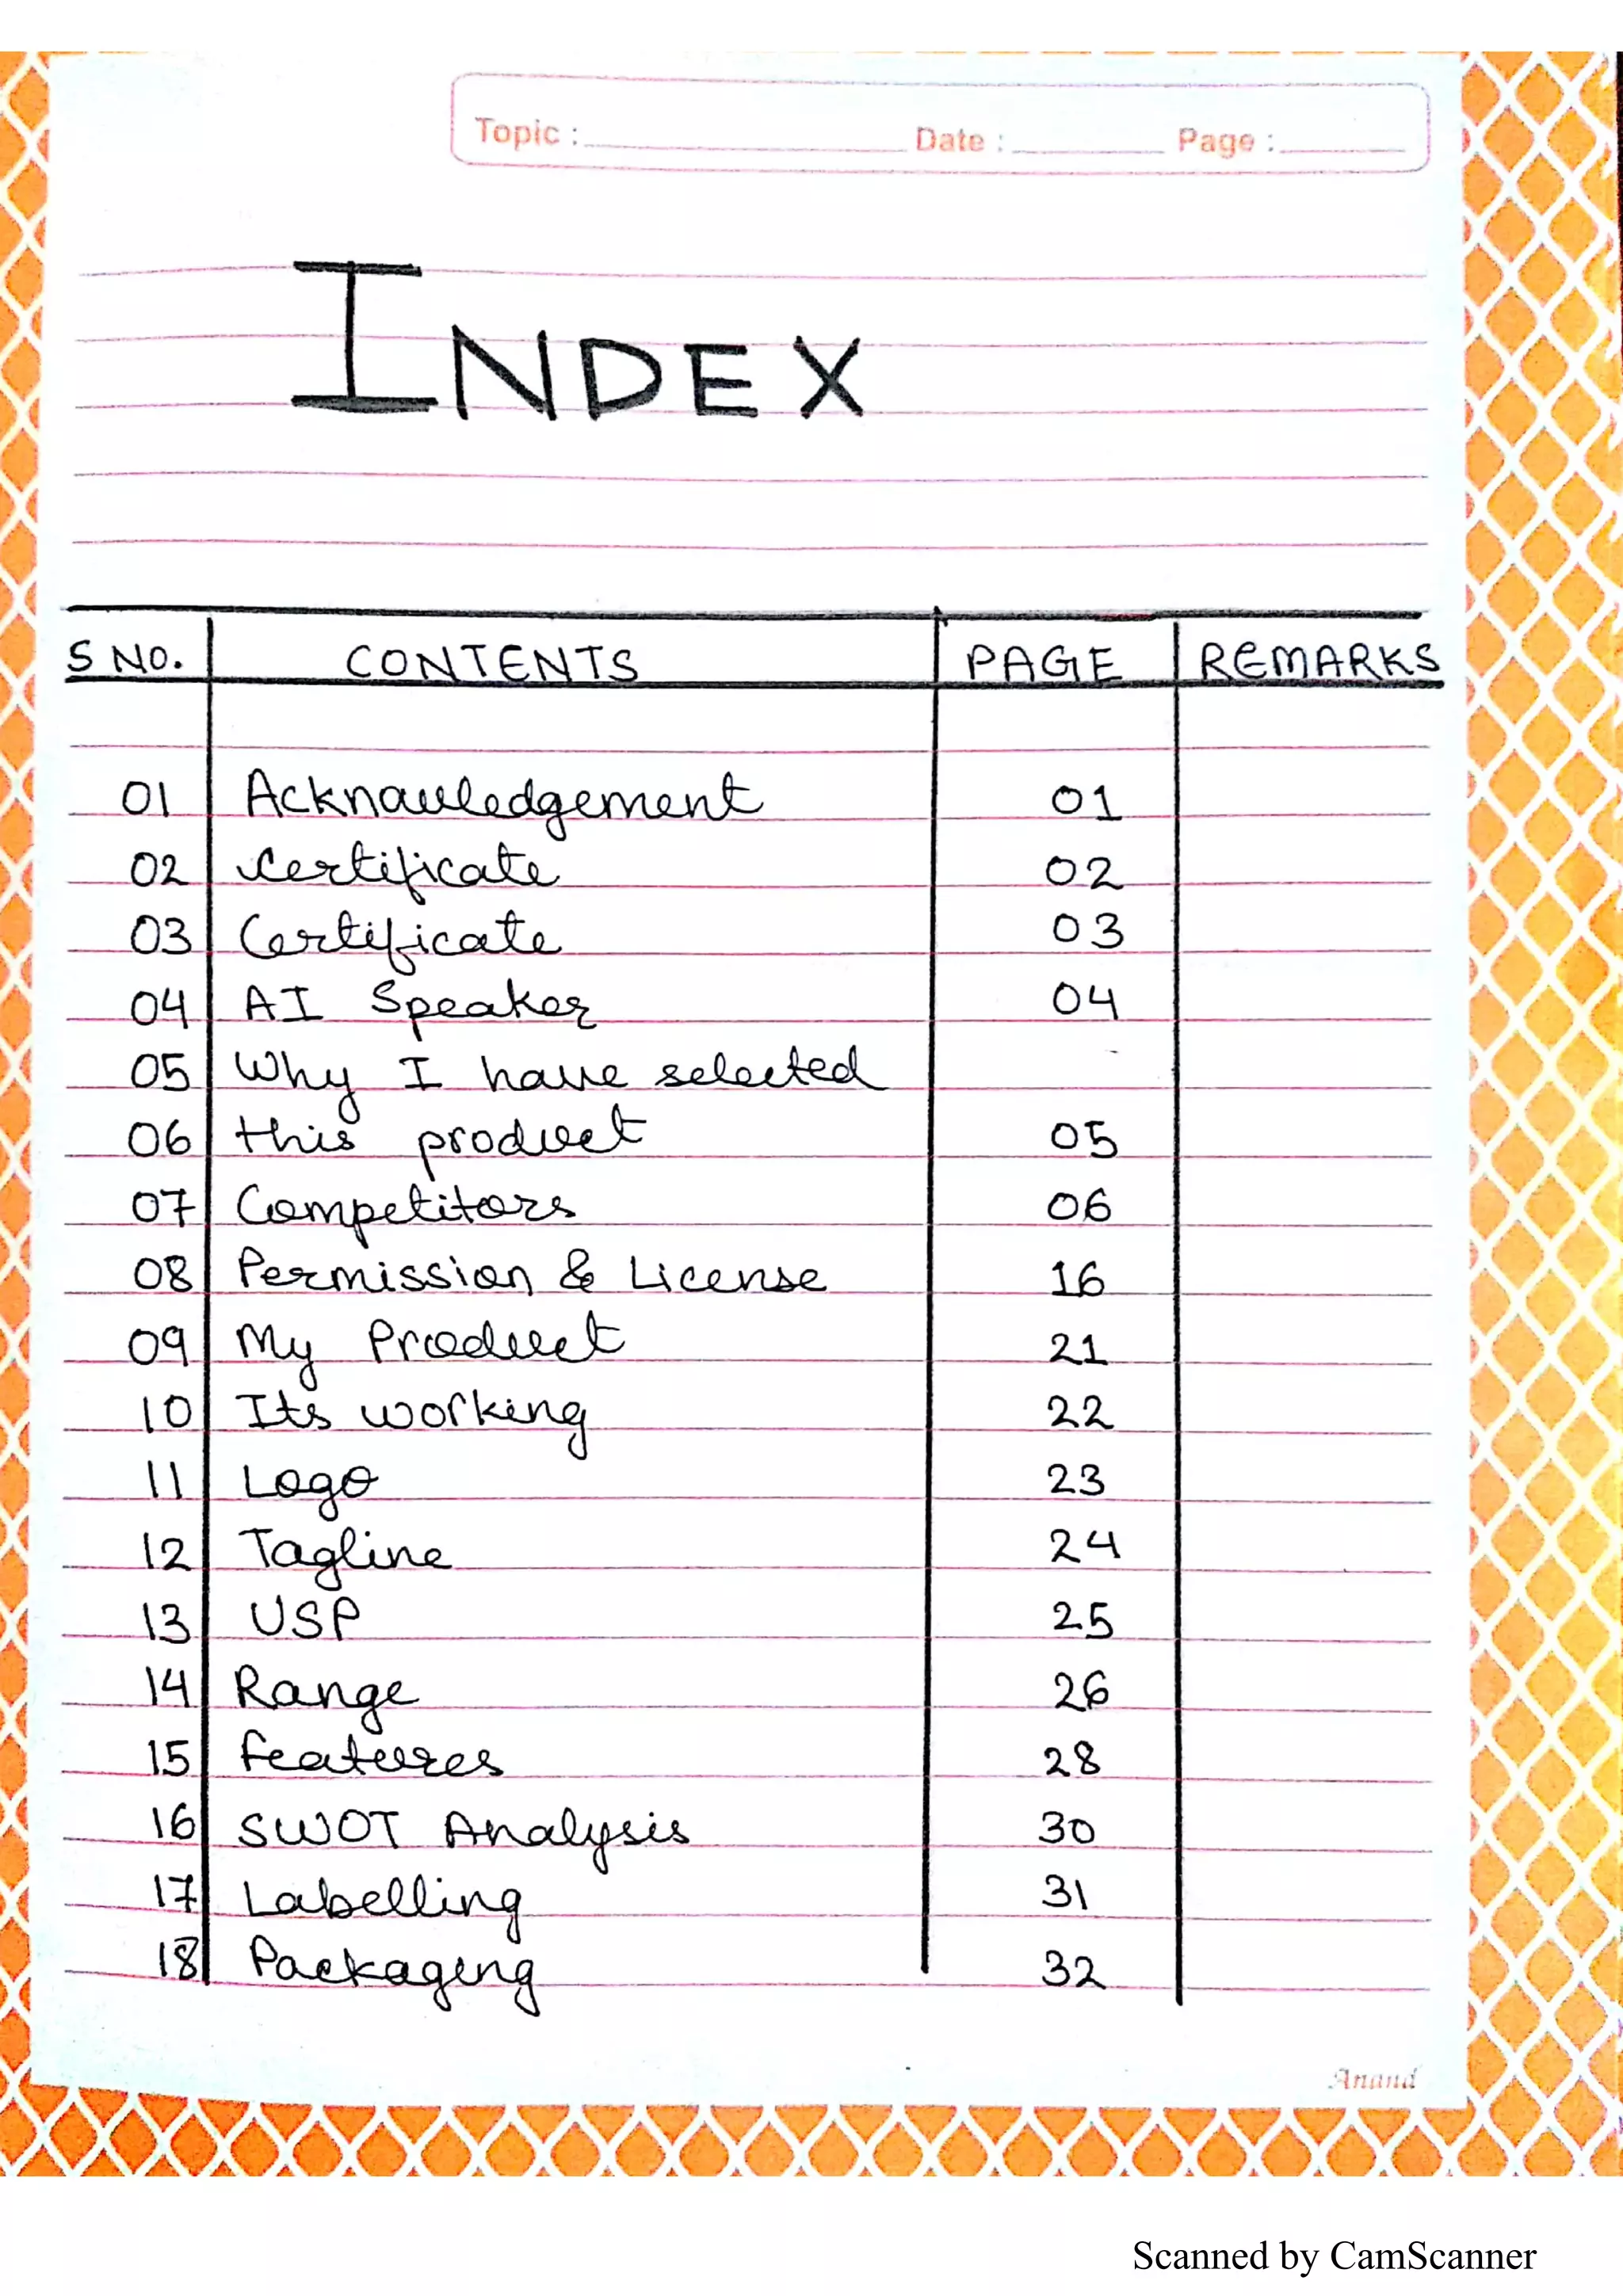 Topic : Date : Page :
INDEX
S NO. CONTENTS PAGE REMARKS
01 Acknowledgement 01
02 Certificate 02
03 Certificate 03
04 AI Speaker 04
05 Why I have selected
06 this product 05
07 Competitors 06
08 Permission & License 16
09 My Product 21
10 Its working 22
11 Logo 23
12 Tagline 24
13 USP 25
14 Range 26
15 Features 28
16 SWOT Analysis 30
17 Labelling 31
18 Packaging 32
Anand
Scanned by CamScanner